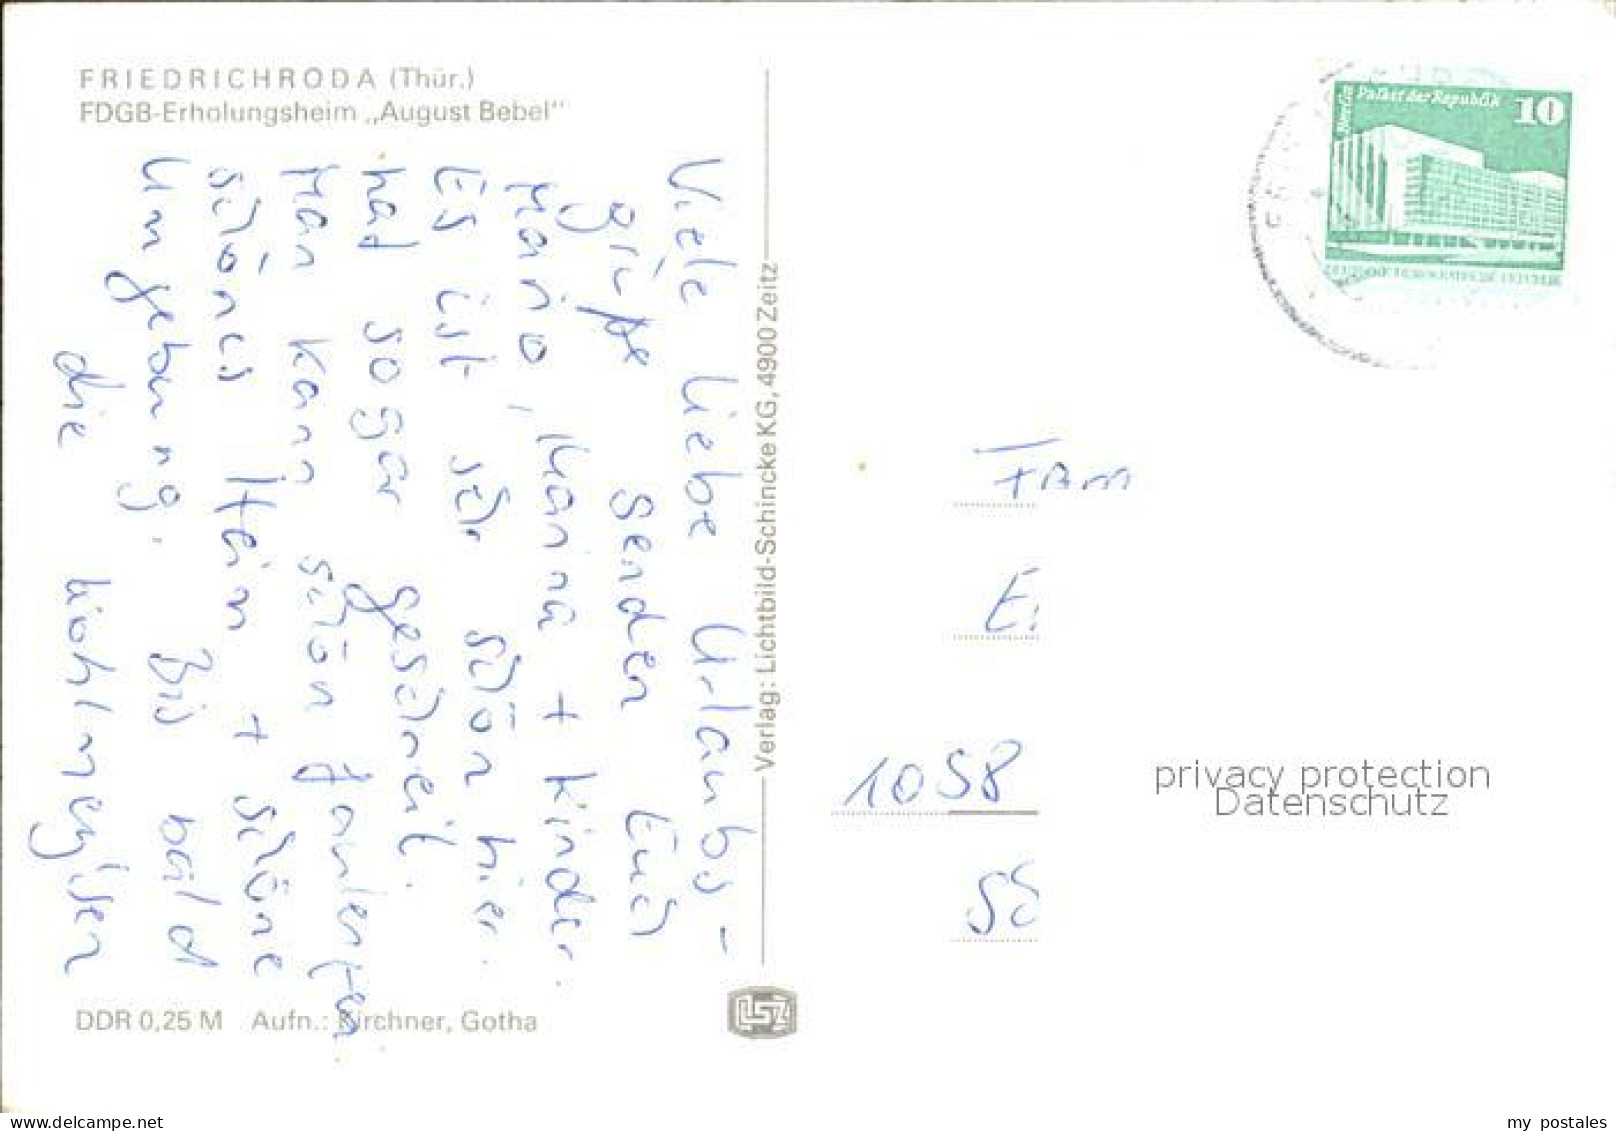 FRIEDRICHRODA (Thür.)
FDGB-Erholungsheim „August Bebel"
Viele liebe Urlaubs-
grüße senden Euch
Mario, Karina + Kinder.
Es ist sehr schön hier.
hat sogar geschneit.
Man kann schön faulenzen
schönes Heim + schöne
Umgebung. Bis bald
die
DDR 0,25 M Aufn.: Kirchner, Gotha
Verlag: Lichtbild-Schincke KG, 4900 Zeitz
LSZ
Berlin Palast der Republik 10
DEUTSCHE DEMOKRATISCHE REPUBLIK
Fam
E.
1058
privacy protection
Datenschutz
DDR-19162300
my postales